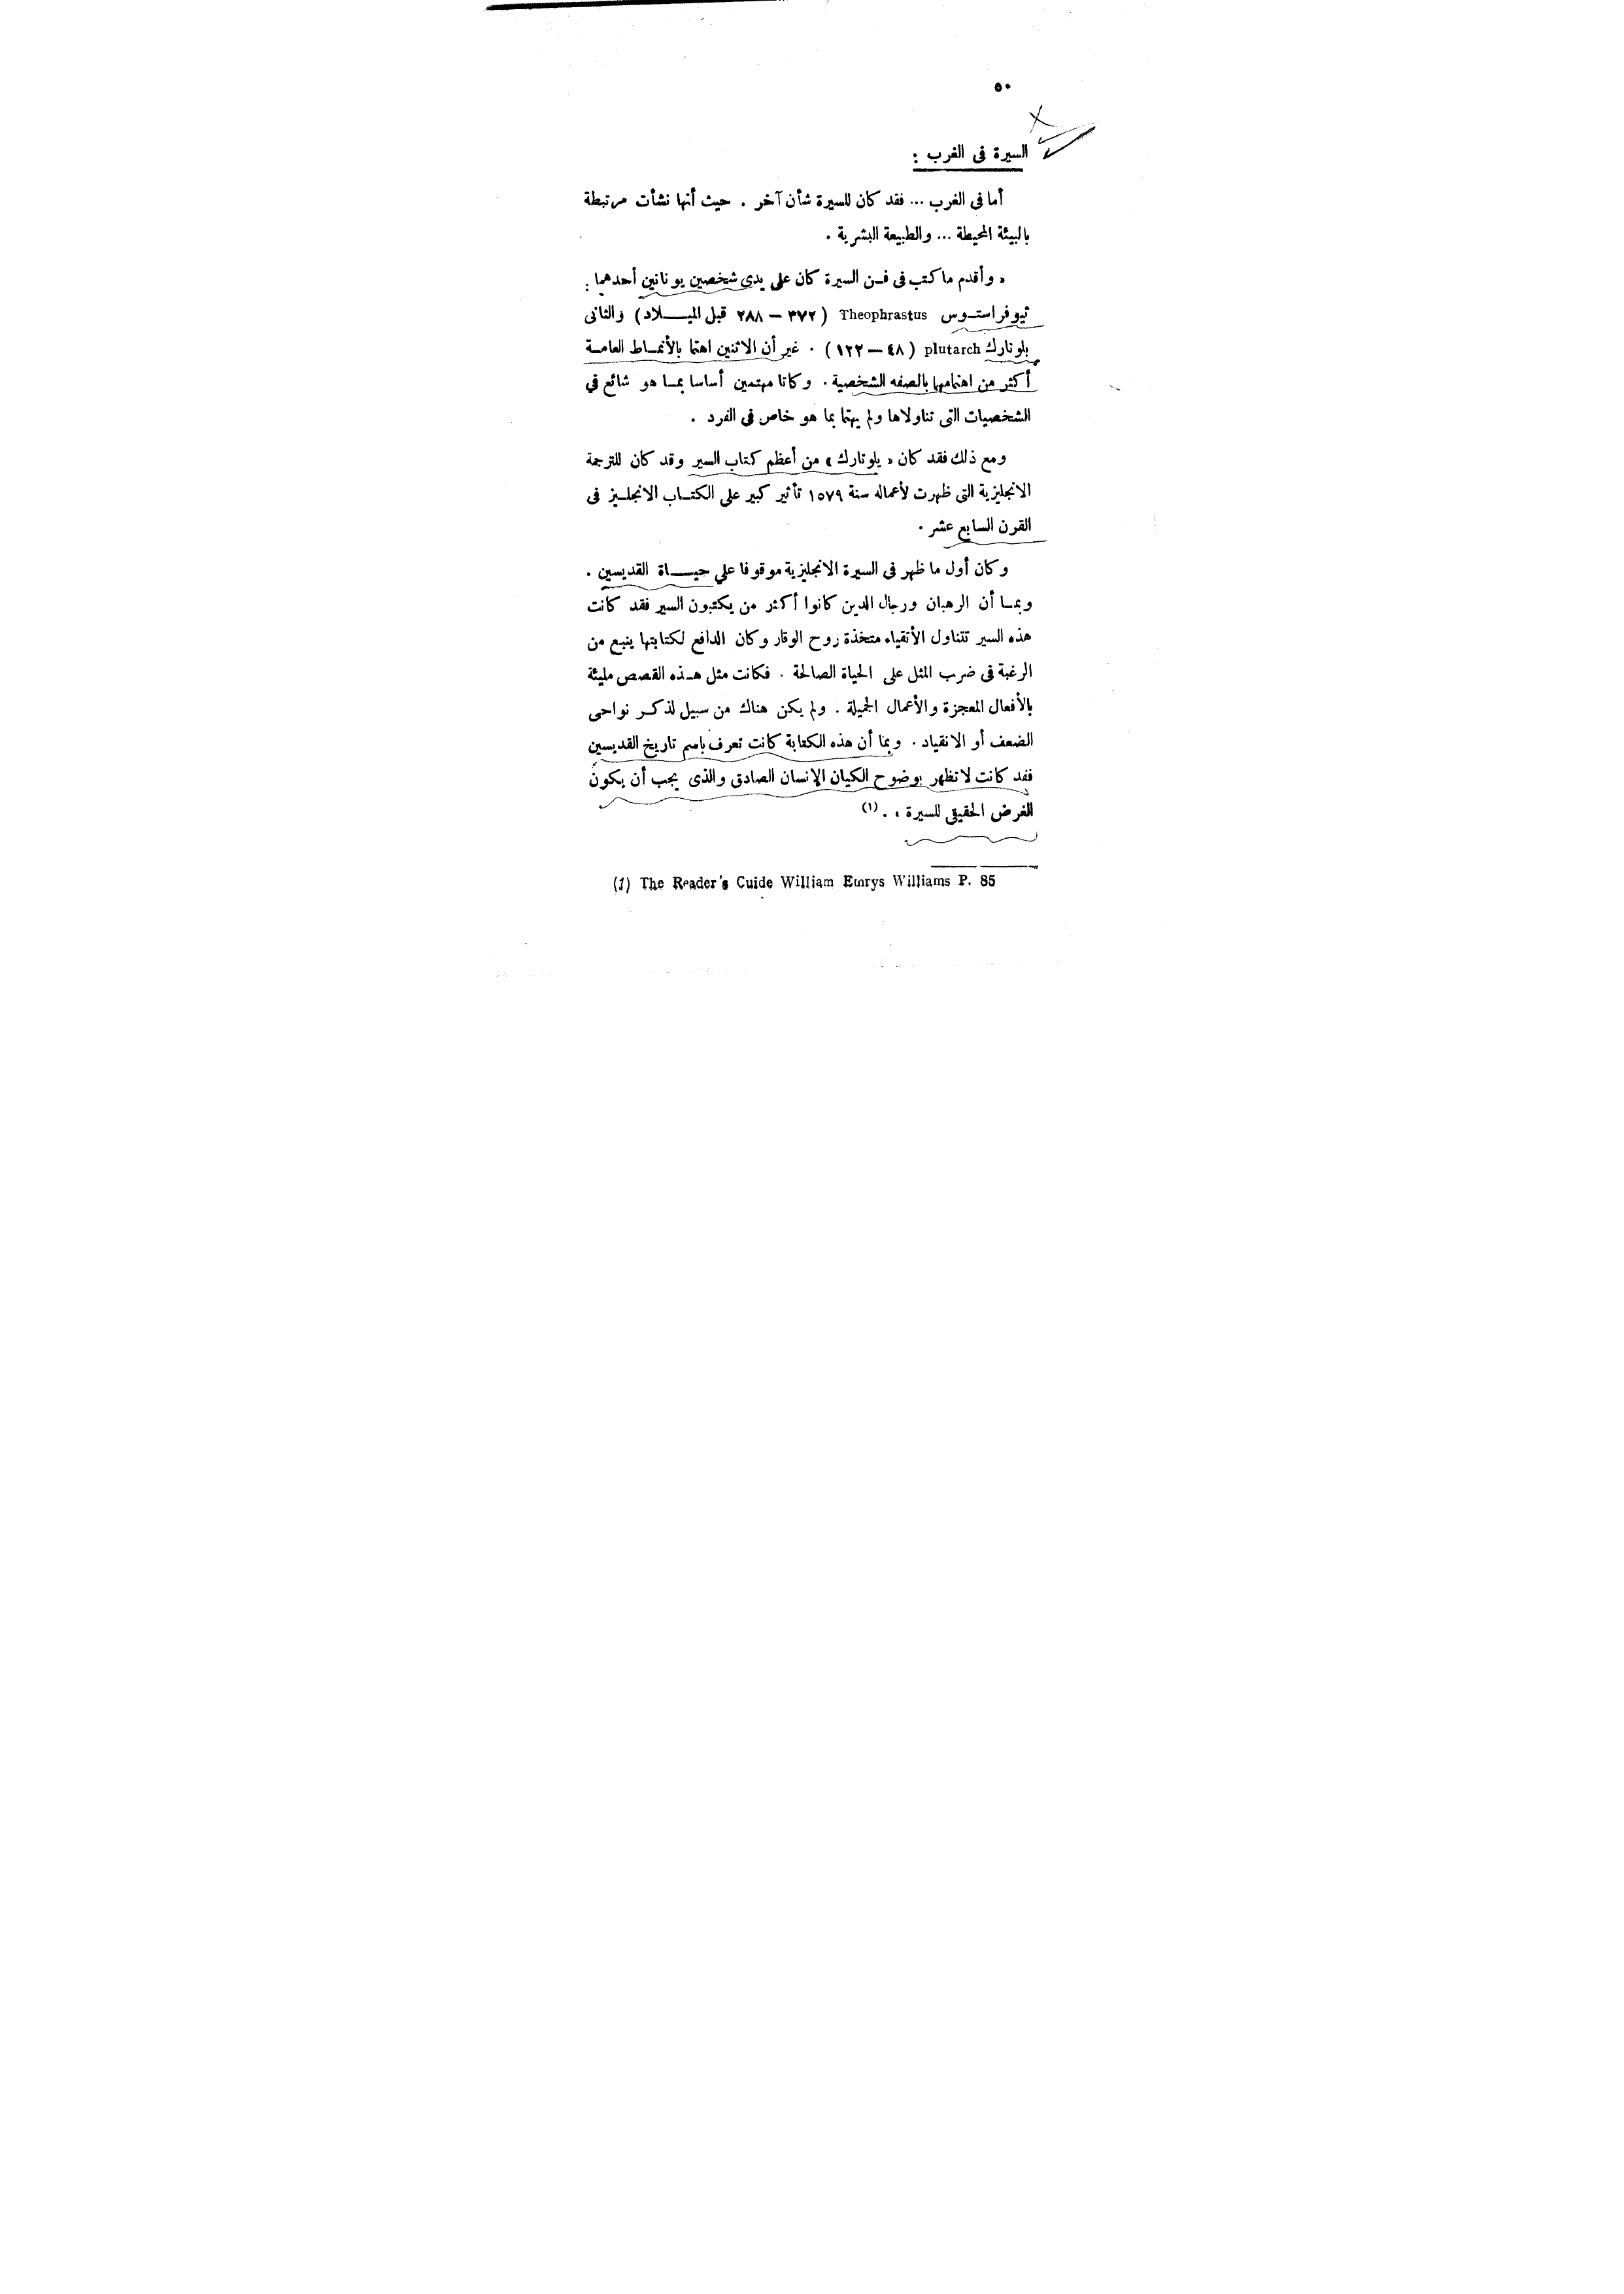 ٥٠
السيرة فى الغرب :
أما فى الغرب ... فقد كان للسيرة شأن آخر . حيث أنها نشأت مرتبطة
بالبيئة المحيطة ... والطبيعة البشرية .
« وأقدم ما كتب فى فن السيرة كان على يدى شخصين يونانين أحدهما :
ثيوفراستوس Theophrastus ( ٣٧٢ — ٢٨٨ قبل الميلاد ) والثانى
بلوتارك plutarch ( ٤٨ — ١٢٢ ) . غير أن الاثنين اهتما بالأنماط العامة
أكثر من اهتمامهما بالصفه الشخصية . وكانا مهتمين أساسا بما هو شائع فى
الشخصيات التى تناولاها ولم يهتما بما هو خاص فى الفرد .
ومع ذلك فقد كان « يلوتارك » من أعظم كتاب السير وقد كان للترجمة
الانجليزية التى ظهرت لأعماله سنة ١٥٧٩ تأثير كبير على الكتاب الانجليز فى
القرن السابع عشر .
وكان أول ما ظهر فى السيرة الانجليزية موقوفا على حياة القديسين .
وبما أن الرهبان ورجال الدين كانوا أكثر من يكتبون السير فقد كانت
هذه السير تتناول الأتقياء متخذة روح الوقار وكان الدافع لكتابتها ينبع من
الرغبة فى ضرب المثل على الحياة الصالحة . فكانت مثل هذه القصص مليئة
بالأفعال المعجزة والأعمال الجميلة . ولم يكن هناك من سبيل لذكر نواحى
الضعف أو الانقياد . وبما أن هذه الكتابة كانت تعرف باسم تاريخ القديسين
فقد كانت لا تظهر بوضوح الكيان الإنسان الصادق والذى يجب أن يكون
الغرض الحقيقى للسيرة » . (١)
(1) The Reader's Cuide William Emrys Williams P. 85